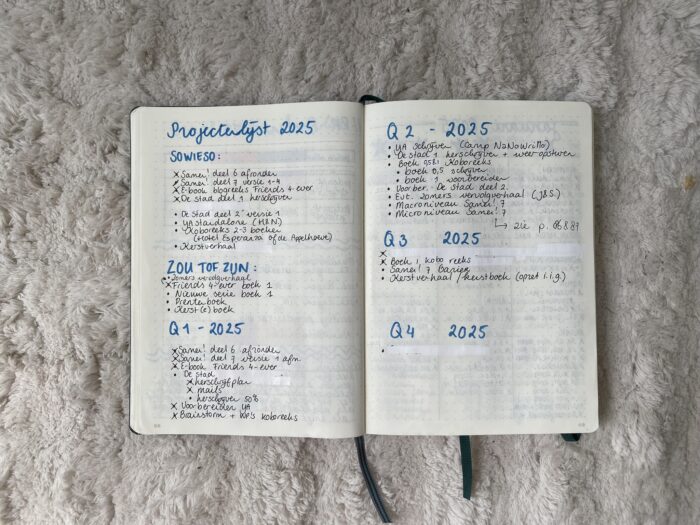 Projectenlijst 2025
SOWIESO:
x Samen! deel 6 afronden
x Samen! deel 7 versie 1-4
x E-book blogreeks Friends 4-ever
x De stad deel 1 herschrijven
• De stad deel 2 versie 1
• YA standalone (M&N)
• Koboreeks 2-3 boeken
(Hotel Esperanza of de Appelhoeve)
• Kerstverhaal
ZOU TOF ZIJN:
• Zomers vervolgverhaal
x Friends 4-ever boek 1
• Nieuwe serie boek 1
• Prentenboek
• Kerst(e)boek
Q1 - 2025
x Samen! deel 6 afronden
x Samen! deel 7 versie 1 afm.
x E-book Friends 4-ever
• De stad
x herschrijfplan
x mails
• herschrijven 50%
x Voorbereiden YA
x Brainstorm + WP's Koboreeks
Q2 - 2025
• YA schrijven (Camp NaNoWriMo)
• De stad 1 herschrijven + weer opsturen
• Boek 0,5&1 Koboreeks
• boek 0,5 schrijven
• boek 1 voorbereiden
• Voorber. De stad deel 2.
• Evt. zomers vervolgverhaal (J&S)
• Macroniveau Samen! 7
• Microniveau Samen! 7
↳ zie p. 86.8.87
Q3 2025
x
• Boek 1 kobo reeks
• Samen! 7
• Kerstverhaal / kerstboek (opzet i.i.g.)
Q4 2025
•